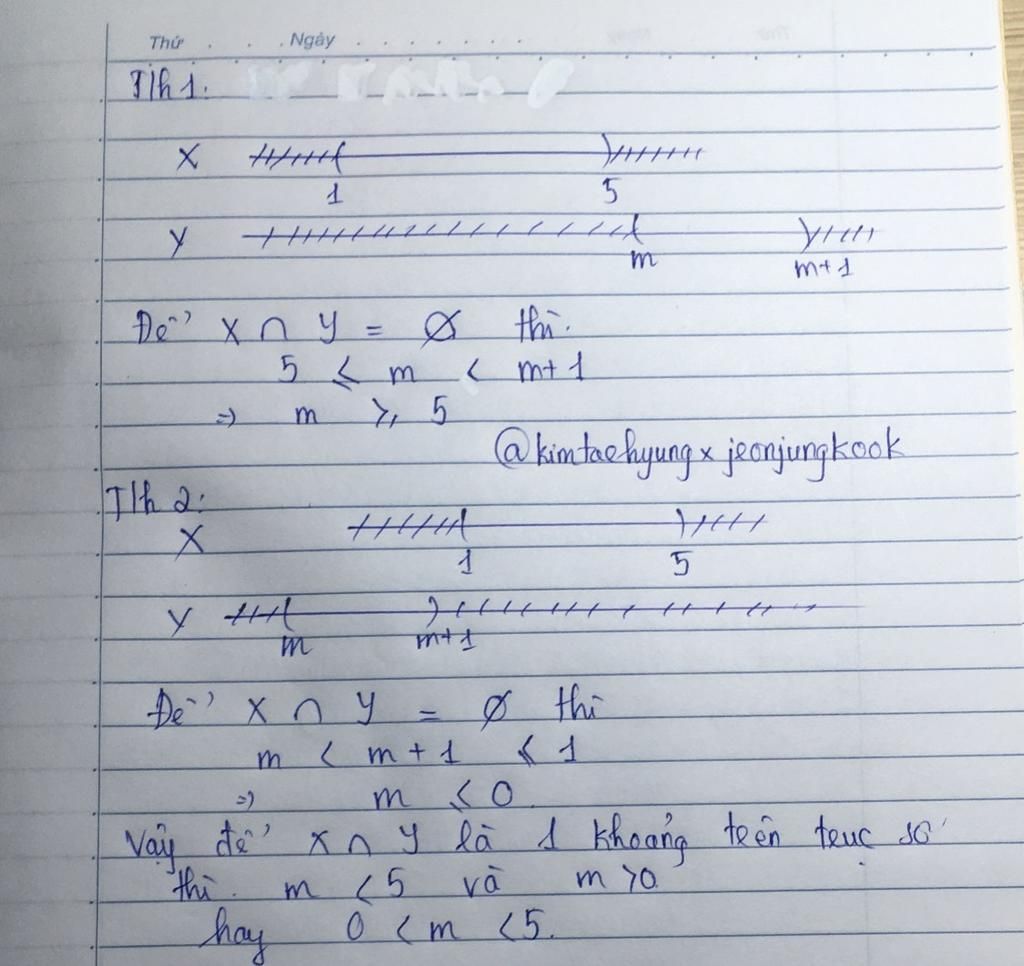 Thứ . . . Ngày . . . . . .
T/h 1:
X
1 5
Y
m m+1
Để X ∩ Y = Ø thì.
5 ≤ m < m+1
=) m ≥ 5
@kimtaehyung x jeonjungkook
T/h 2:
X
1 5
Y
m m+1
Để X ∩ Y = Ø thì
m < m+1 ≤ 1
=) m ≤ 0
Vậy để X ∩ Y là 1 khoảng trên trục số
thì. m < 5 và m > 0
hay 0 < m < 5.